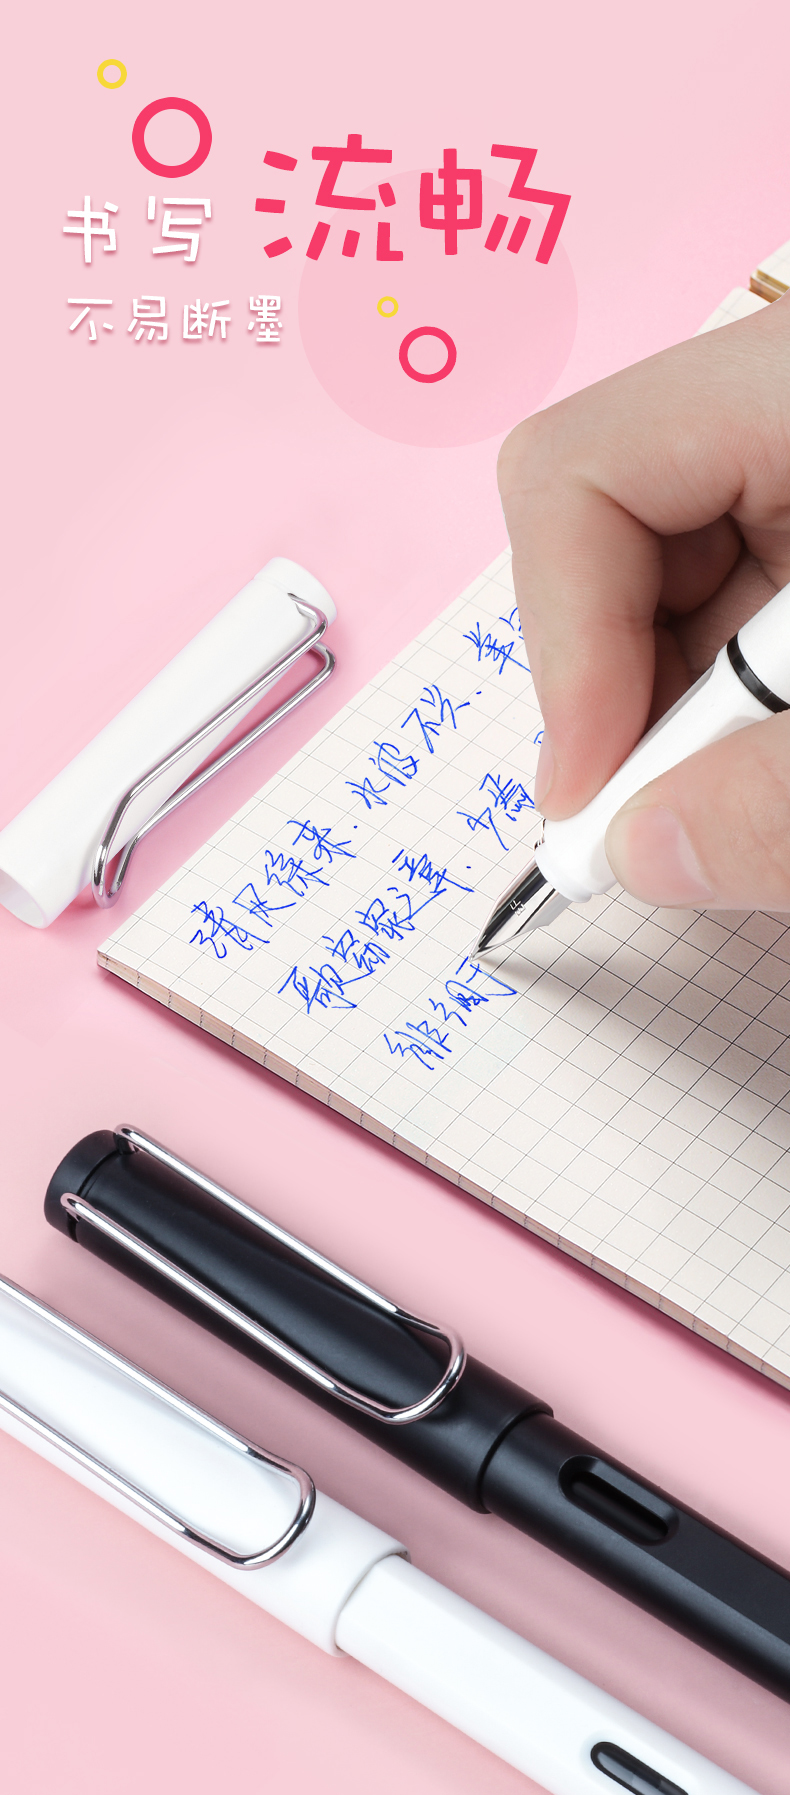 书写流畅
不易断墨
清风徐来.水波不兴.举
歌窈窕之章.少焉